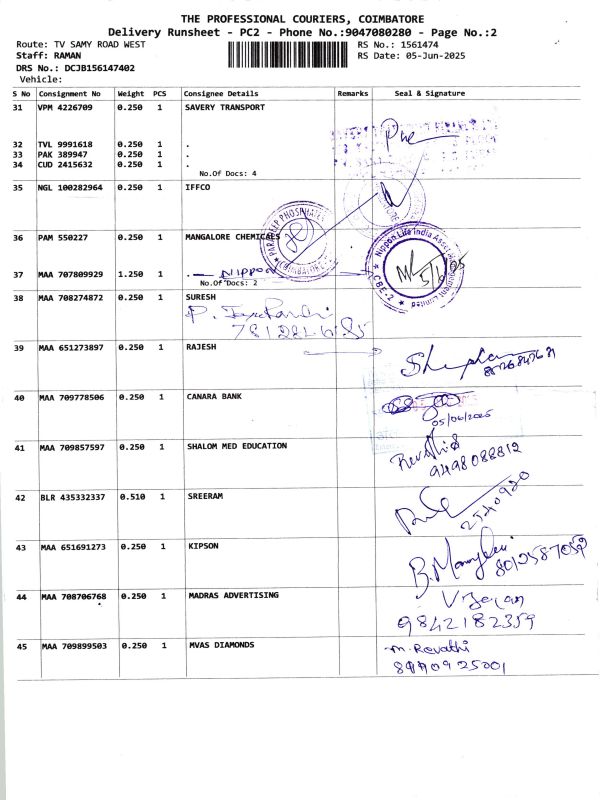 THE PROFESSIONAL COURIERS, COIMBATORE
Delivery Runsheet - PC2 - Phone No.:9047080280 - Page No.:2
Route: TV SAMY ROAD WEST
Staff: RAMAN
DRS No.: DCJB156147402
Vehicle:
RS No.: 1561474
RS Date: 05-Jun-2025
S No Consignment No Weight PCS Consignee Details Remarks Seal & Signature
31 VPM 4226709 0.250 1 SAVERY TRANSPORT
32 TVL 9991618 0.250 1 .
33 PAK 389947 0.250 1 .
34 CUD 2415632 0.250 1 .
No.Of Docs: 4
35 NGL 100282964 0.250 1 IFFCO
PARADEEP PHOSPHATES
COIMBATORE
36 PAM 550227 0.250 1 MANGALORE CHEMICALS
Nippon Life India Asset Management Limited
CBE-2
37 MAA 707809929 1.250 1 . - NIPPON
No.Of Docs: 2
5/6/25
38 MAA 708274872 0.250 1 SURESH
39 MAA 651273897 0.250 1 RAJESH
40 MAA 709778506 0.250 1 CANARA BANK
05/06/2025
41 MAA 709857597 0.250 1 SHALOM MED EDUCATION
Revathi S
9498088812
42 BLR 435332337 0.510 1 SREERAM
2540920
43 MAA 651691273 0.250 1 KIPSON
8012587059
44 MAA 708706768 0.250 1 MADRAS ADVERTISING
Vijayan
9842182359
45 MAA 709899503 0.250 1 MVAS DIAMONDS
M. Revathi